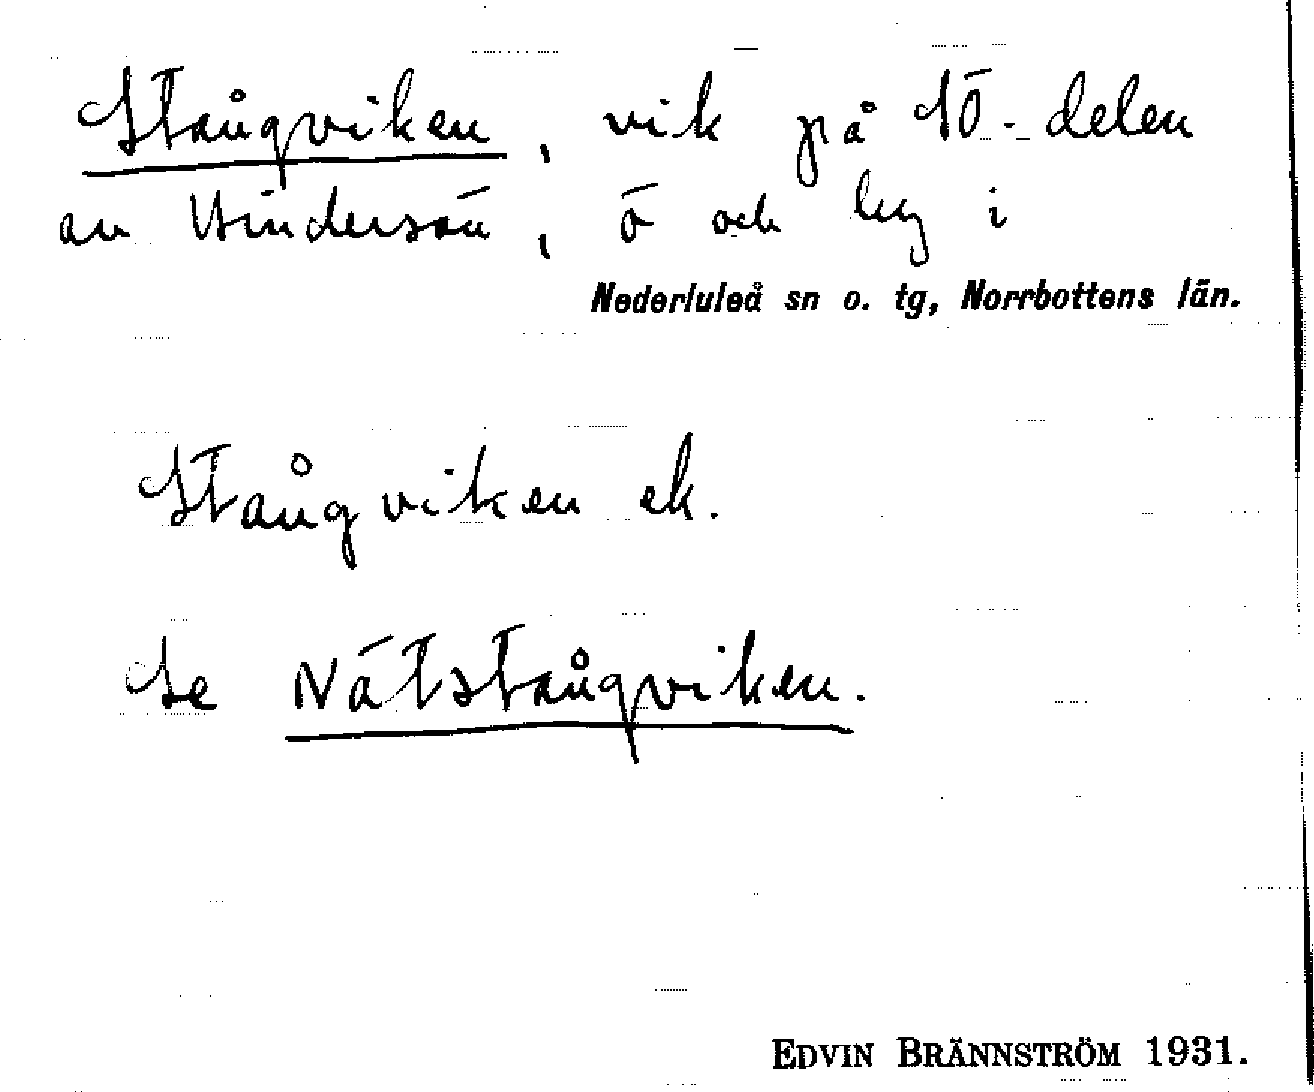 Stångviken, vik på SÖ-delen
av Hindersön, ö och by i
Nederluleå sn o. tg, Norrbottens län.
Stångviken ek.
Se Nätstångviken.
EDVIN BRÄNNSTRÖM 1931.